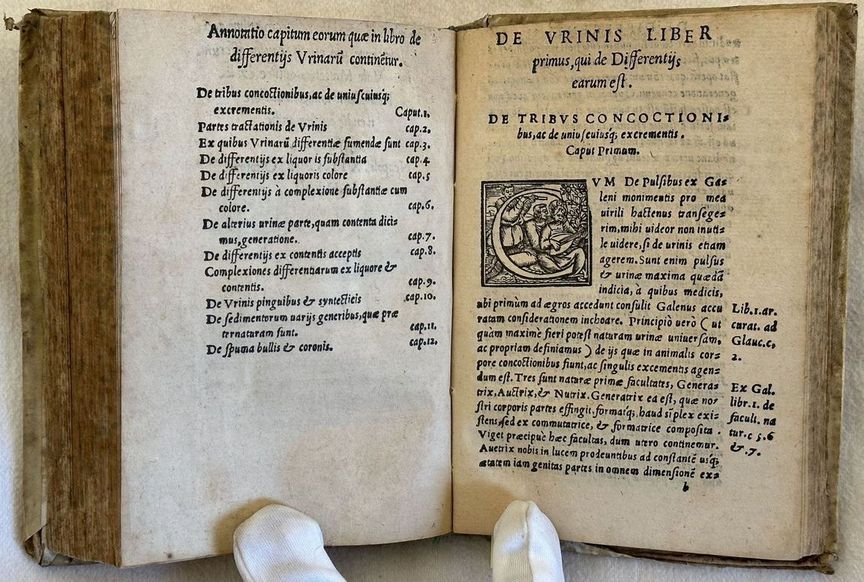 Annotatio capitum eorum quæ in libro de
differentijs Vrinarũ continẽtur.
De tribus concoctionibus, ac de uniuscuiusq;
excrementis. Caput.1.
Partes tractationis de Vrinis cap.2.
Ex quibus Vrinarũ differentiæ sumendæ sunt cap.3.
De differentijs ex liquor is substantia cap.4
De differentijs ex liquoris colore cap.5
De differentijs à complexione substantiæ cum
colore. cap.6.
De alterius urinæ parte, quam contenta dici=
mus, generatione. cap.7.
De differentijs ex contentis acceptis cap.8.
Complexiones differentiarum ex liquore &
contentis. cap.9.
De Vrinis pinguibus & syntecticis cap.10.
De sedimentorum uarijs generibus, quæ præ
ter naturam sunt. cap.11.
De spuma bullis & coronis. cap.12.
DE VRINIS LIBER
primus, qui de Differentijs
earum est.
DE TRIBVS CONCOCTIONI=
bus, ac de uniuscuiusq; excrementis.
Caput Primum.
CVM De Pulsibus ex Ga=
leni monimentis pro mea
uirili hactenus transege=
rim, mihi uideor non inuti=
le uidere, si de urinis etiam
agerem. Sunt enim pulsus
& urinæ maxima quædã
indicia, à quibus medicis,
ubi primum ad ægros accedunt consulit Galenus accu
ratam considerationem inchoare. Principiò uerò ( ut
quàm maximè fieri potest naturam urinæ uniuersam,
ac propriam definiamus ) de ijs quæ in animalis cor=
pore concoctionibus fiunt, ac singulis excementis agen=
dum est. Tres sunt naturæ primæ facultates, Genera=
trix, Auctrix, & Nutrix. Generatrix ea est, quæ no=
stri corporis partes effingit, formatq;, haud sĩplex exi=
stens, sed ex commutatrice, & formatrice composita.
Viget præcipuè hæc facultas, dum utero continemur.
Auctrix nobis in lucem prodeuntibus ad constantẽ usq;
ætatem iam genitas partes in omnem dimensionẽ ex=
b
Lib.1.ar.
curat. ad
Glauc.c,
2.
Ex Gal.
libr.1. de
faculi. na
tur.c 5.6
&.7.